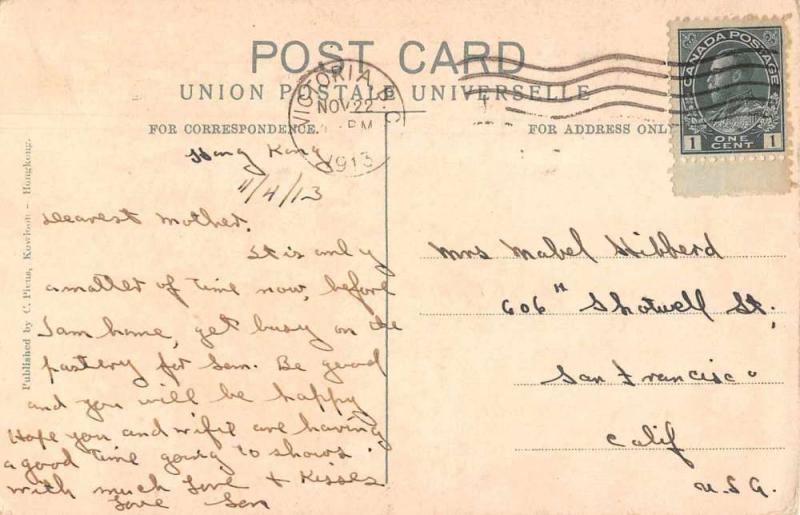 POST CARD
UNION POSTALE UNIVERSELLE
FOR CORRESPONDENCE.
FOR ADDRESS ONLY
VICTORIA B.C.
NOV 22
PM
1913
CANADA POSTAGE
1 ONE CENT 1
Published by C. Picus, Kowloon - Hongkong.
Hong Kong
11/4/13
Dearest Mother.
It is only
a matter of time now, before
I am home, get busy on the
pastery for Son. Be good
and you will be happy
Hope you and wifie are having
a good time going to shows.
with much Love + Kisses
Love Son
Mrs Mabel Hibberd
606 A Shotwell St.
San Francisco
Calif
U.S.A.